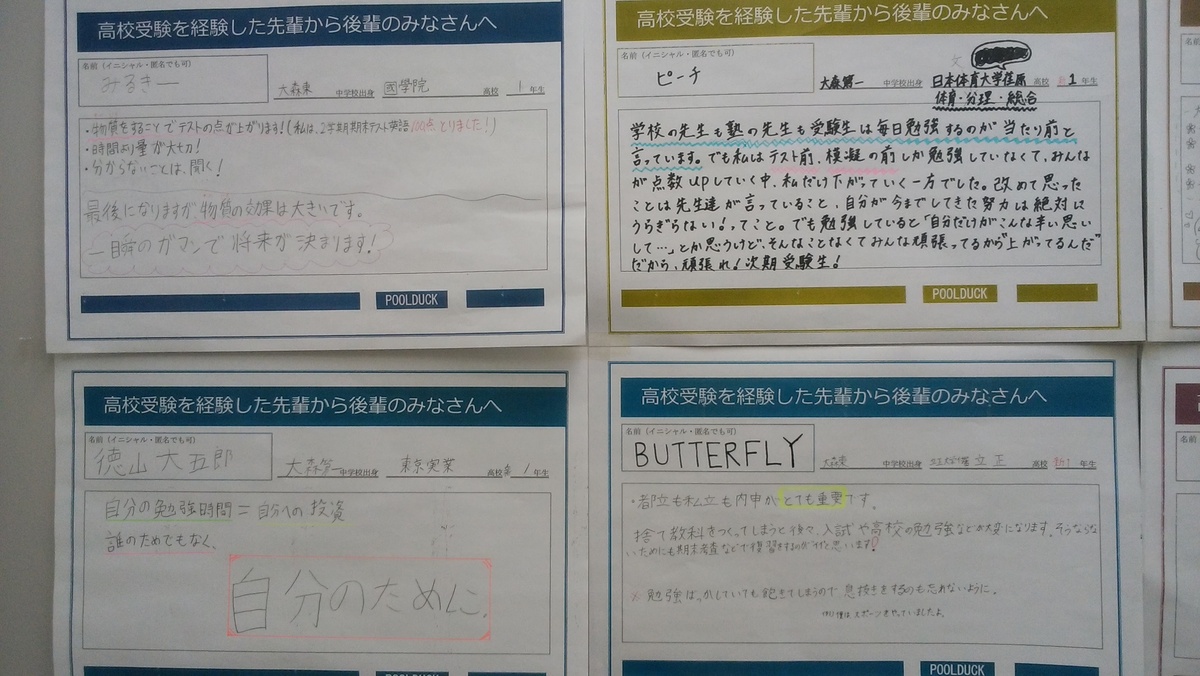 高校受験を経験した先輩から後輩のみなさんへ
名前（イニシャル・匿名でも可）
みるきー
大森東 中学校出身 國學院 高校 1 年生
・物質をすることでテストの点が上がります!(私は、2学期期末テスト英語100点とりました!)
・時間より量が大切!
・分からないことは、聞く!
最後になりますが、物質の効果は大きいです。
一瞬のガマンで将来が決まります!
POOLDUCK
高校受験を経験した先輩から後輩のみなさんへ
名前（イニシャル・匿名でも可）
ピーチ
大森第一 中学校出身 日本体育大学荏原 高校 新1 年生
体育・分理・総合
学校の先生も塾の先生も受験生は毎日勉強するのが当たり前と
言っています。でも私はテスト前、模擬の前しか勉強していなくて、みんな
が点数upしていく中、私だけ下がっていく一方でした。改めて思った
ことは先生達が言っていること、自分が今までしてきた努力は絶対に
うらぎらない!ってこと。でも勉強していると「自分だけがこんな辛い思い
して…」とか思うけど、そんなことなくてみんな頑張ってるから"上がってるんだ"
だから、頑張れ!次期受験生!
POOLDUCK
高校受験を経験した先輩から後輩のみなさんへ
名前（イニシャル・匿名でも可）
徳山大五郎
大森第一 中学校出身 東京実業 高校 1 年生
自分の勉強時間=自分への投資
誰のためでもなく、
自分のために.
POOLDUCK
高校受験を経験した先輩から後輩のみなさんへ
名前（イニシャル・匿名でも可）
BUTTERFLY
大森東 中学校出身 立正 高校 新1 年生
・都立も私立も内申がとても重要です。
捨て教科をつくってしまうと後々、入試や高校の勉強などが大変になります。そうならな
いためにも期末考査などで復習をするのが
と思います!
※勉強ばっかしていても飽きてしまうので息抜きをするのも忘れないように。
(例)僕はスポーツをやっていましたよ。
POOLDUCK